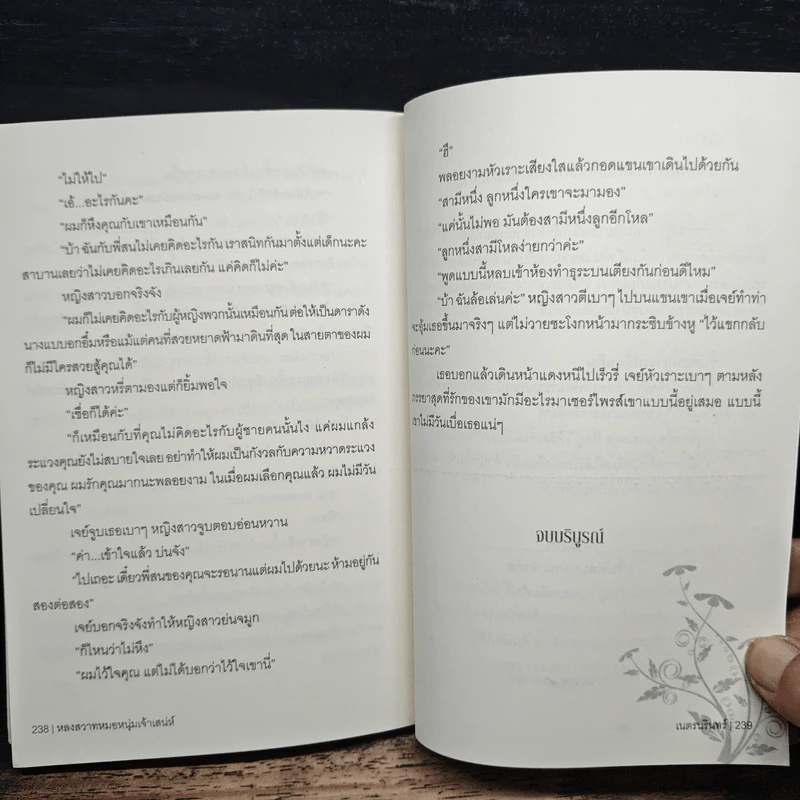 “ไม่ให้ไป”
“เอ้...อะไรกันคะ”
“ผมก็หึงคุณกับเขาเหมือนกัน”
“บ้า ฉันกับพี่สนไม่เคยคิดอะไรกัน เราสนิทกันมาตั้งแต่เด็กนะคะ
สาบานเลยว่าไม่เคยคิดอะไรเกินเลยกัน แค่คิดก็ไม่ค่ะ”
หญิงสาวบอกจริงจัง
“ผมก็ไม่เคยคิดอะไรกับผู้หญิงพวกนั้นเหมือนกัน ต่อให้เป็นดาราดัง
นางแบบอกอึ๋มหรือแม้แต่คนที่สวยหยาดฟ้ามาดินที่สุด ในสายตาของผม
ก็ไม่มีใครสวยสู้คุณได้”
หญิงสาวหรี่ตามองแต่ก็ยิ้มพอใจ
“เชื่อก็ได้ค่ะ”
“ก็เหมือนกับที่คุณไม่คิดอะไรกับผู้ชายคนนั้นไง แค่ผมแกล้ง
ระแวงคุณยังไม่สบายใจเลย อย่าทำให้ผมเป็นกังวลกับความหวาดระแวง
ของคุณ ผมรักคุณมากนะพลอยงาม ในเมื่อผมเลือกคุณแล้ว ผมไม่มีวัน
เปลี่ยนใจ”
เจย์จูบเธอเบาๆ หญิงสาวจูบตอบอ่อนหวาน
“ค่า...เข้าใจแล้ว บ่นจัง”
“ไปเถอะ เดี๋ยวพี่สนของคุณจะรอนานแต่ผมไปด้วยนะ ห้ามอยู่กัน
สองต่อสอง”
เจย์บอกจริงจังทำให้หญิงสาวย่นจมูก
“ก็ไหนว่าไม่หึง”
“ผมไว้ใจคุณ แต่ไม่ได้บอกว่าไว้ใจเขานี่”
238 | หลงสวาทหมอหนุ่มเจ้าเสน่ห์
“ฮึ”
พลอยงามหัวเราะเสียงใสแล้วกอดแขนเขาเดินไปด้วยกัน
“สามีหนึ่ง ลูกหนึ่งใครเขาจะมามอง”
“แค่นั้นไม่พอ มันต้องสามีหนึ่งลูกอีกโหล”
“ลูกหนึ่งสามีโหลง่ายกว่าค่ะ”
“พูดแบบนี้หลบเข้าห้องทำธุระบนเตียงกันก่อนดีไหม”
“บ้า ฉันล้อเล่นค่ะ” หญิงสาวตีเบาๆ ไปบนแขนเขาเมื่อเจย์ทำท่า
จะอุ้มเธอขึ้นมาจริงๆ แต่ไม่วายชะโงกหน้ามากระซิบข้างหู “ไว้แขกกลับ
ก่อนนะคะ”
เธอบอกแล้วเดินหน้าแดงหนีไปเร็วรี่ เจย์หัวเราะเบาๆ ตามหลัง
ภรรยาสุดที่รักของเขามักมีอะไรมาเซอร์ไพรส์เขาแบบนี้อยู่เสมอ แบบนี้
เขาไม่มีวันเบื่อเธอแน่ๆ
จบบริบูรณ์
เนตรนรินทร์ | 239